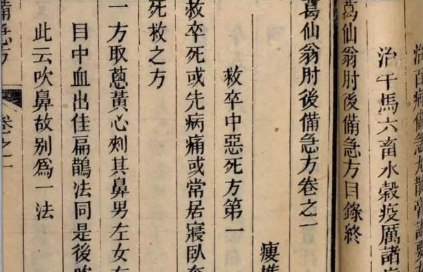 治百病備急丸散膏諸要方
治牛馬六畜水穀疫厲諸病
葛仙翁肘後備急方目錄終
葛仙翁肘後備急方卷之一
救卒中惡死方第一
救卒死或先病痛或常居寢臥奄
死救之方
一方取葱黃心刺其鼻男左女右
目中血出佳扁鵲法同是後
此云吹鼻故别爲一法
備急方 卷之一